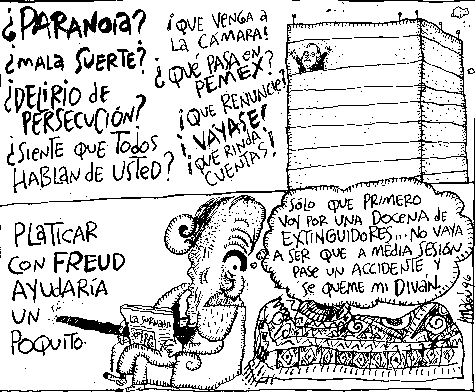 ¿PARANOIA?
¿MALA SUERTE?
¿DELIRIO DE
PERSECUCIÓN?
¿SIENTE QUE TODOS
HABLAN DE USTED?
¡QUE VENGA A
LA CÁMARA!
¿QUÉ PASA EN
PEMEX?
¡QUE RENUNCIE!
¡VAYASE!
¡QUE RINDA
CUENTAS!
PLATICAR
CON FREUD
AYUDARÍA
UN
POQUITO
SÓLO QUE PRIMERO
VOY POR UNA DOCENA DE
EXTINGUIDORES... NO VAYA
A SER QUE A MEDIA SESIÓN
PASE UN ACCIDENTE Y
SE QUEME MI DIVÁN...
LA JORNADA